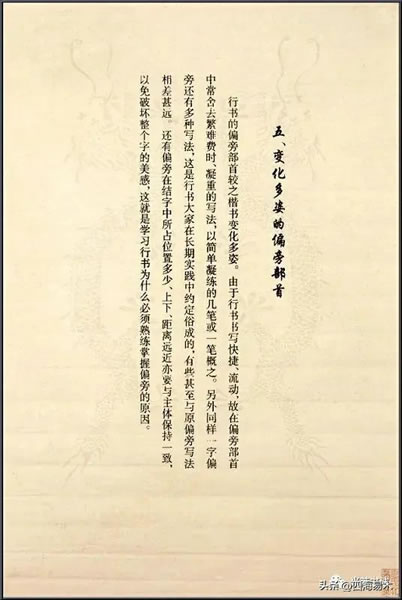 五、变化多姿的偏旁部首
行书的偏旁部首较之楷书变化多姿。由于行书书写快捷、流动，故在偏旁部首
中常舍去繁难费时、凝重的写法，以简单凝练的几笔或一笔概之。另外同样一字偏
旁还有多种写法，这是行书大家在长期实践中约定俗成的，有些甚至与原偏旁写法
相差甚远。还有偏旁在结字中所占位置多少、上下、距离远近亦要与主体保持一致，
以免破坏整个字的美感，这就是学习行书为什么必须熟练掌握偏旁的原因。
头条@四海易木